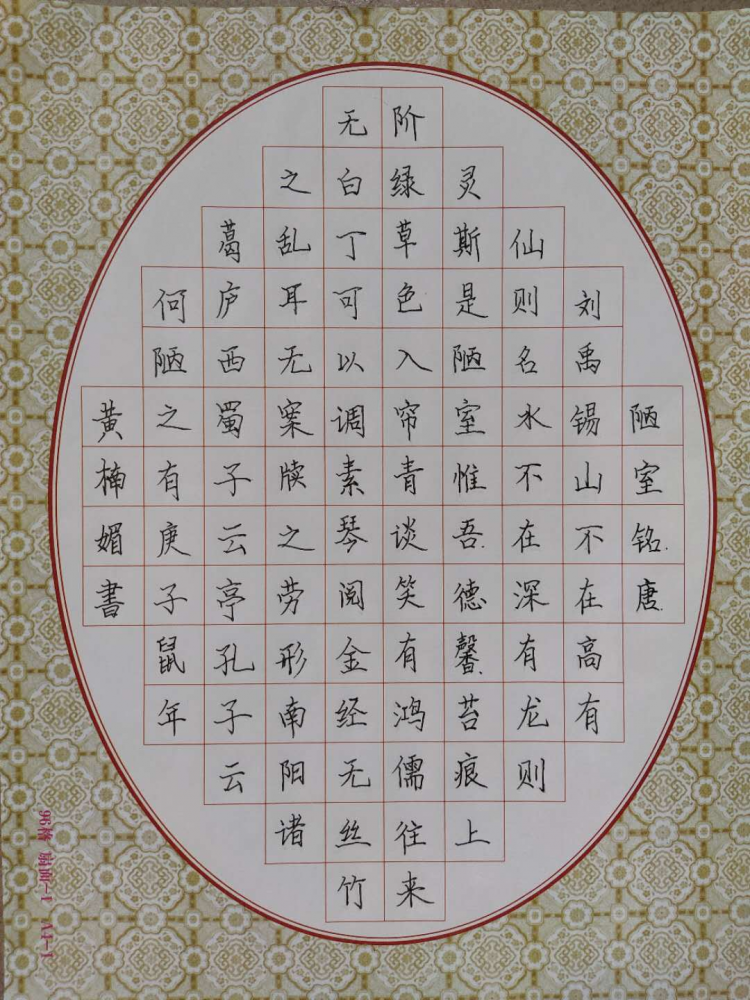 陋室铭唐
刘禹锡山不在高有
仙则名水不在深有龙则
灵斯是陋室惟吾德馨苔痕上
阶绿草色入帘青谈笑有鸿儒往来
无白丁可以调素琴阅金经无丝竹
之乱耳无案牍之劳形南阳诸
葛庐西蜀子云亭孔子云
何陋之有庚子鼠年
黄楠媚書
96格 扇面-1 A4-1